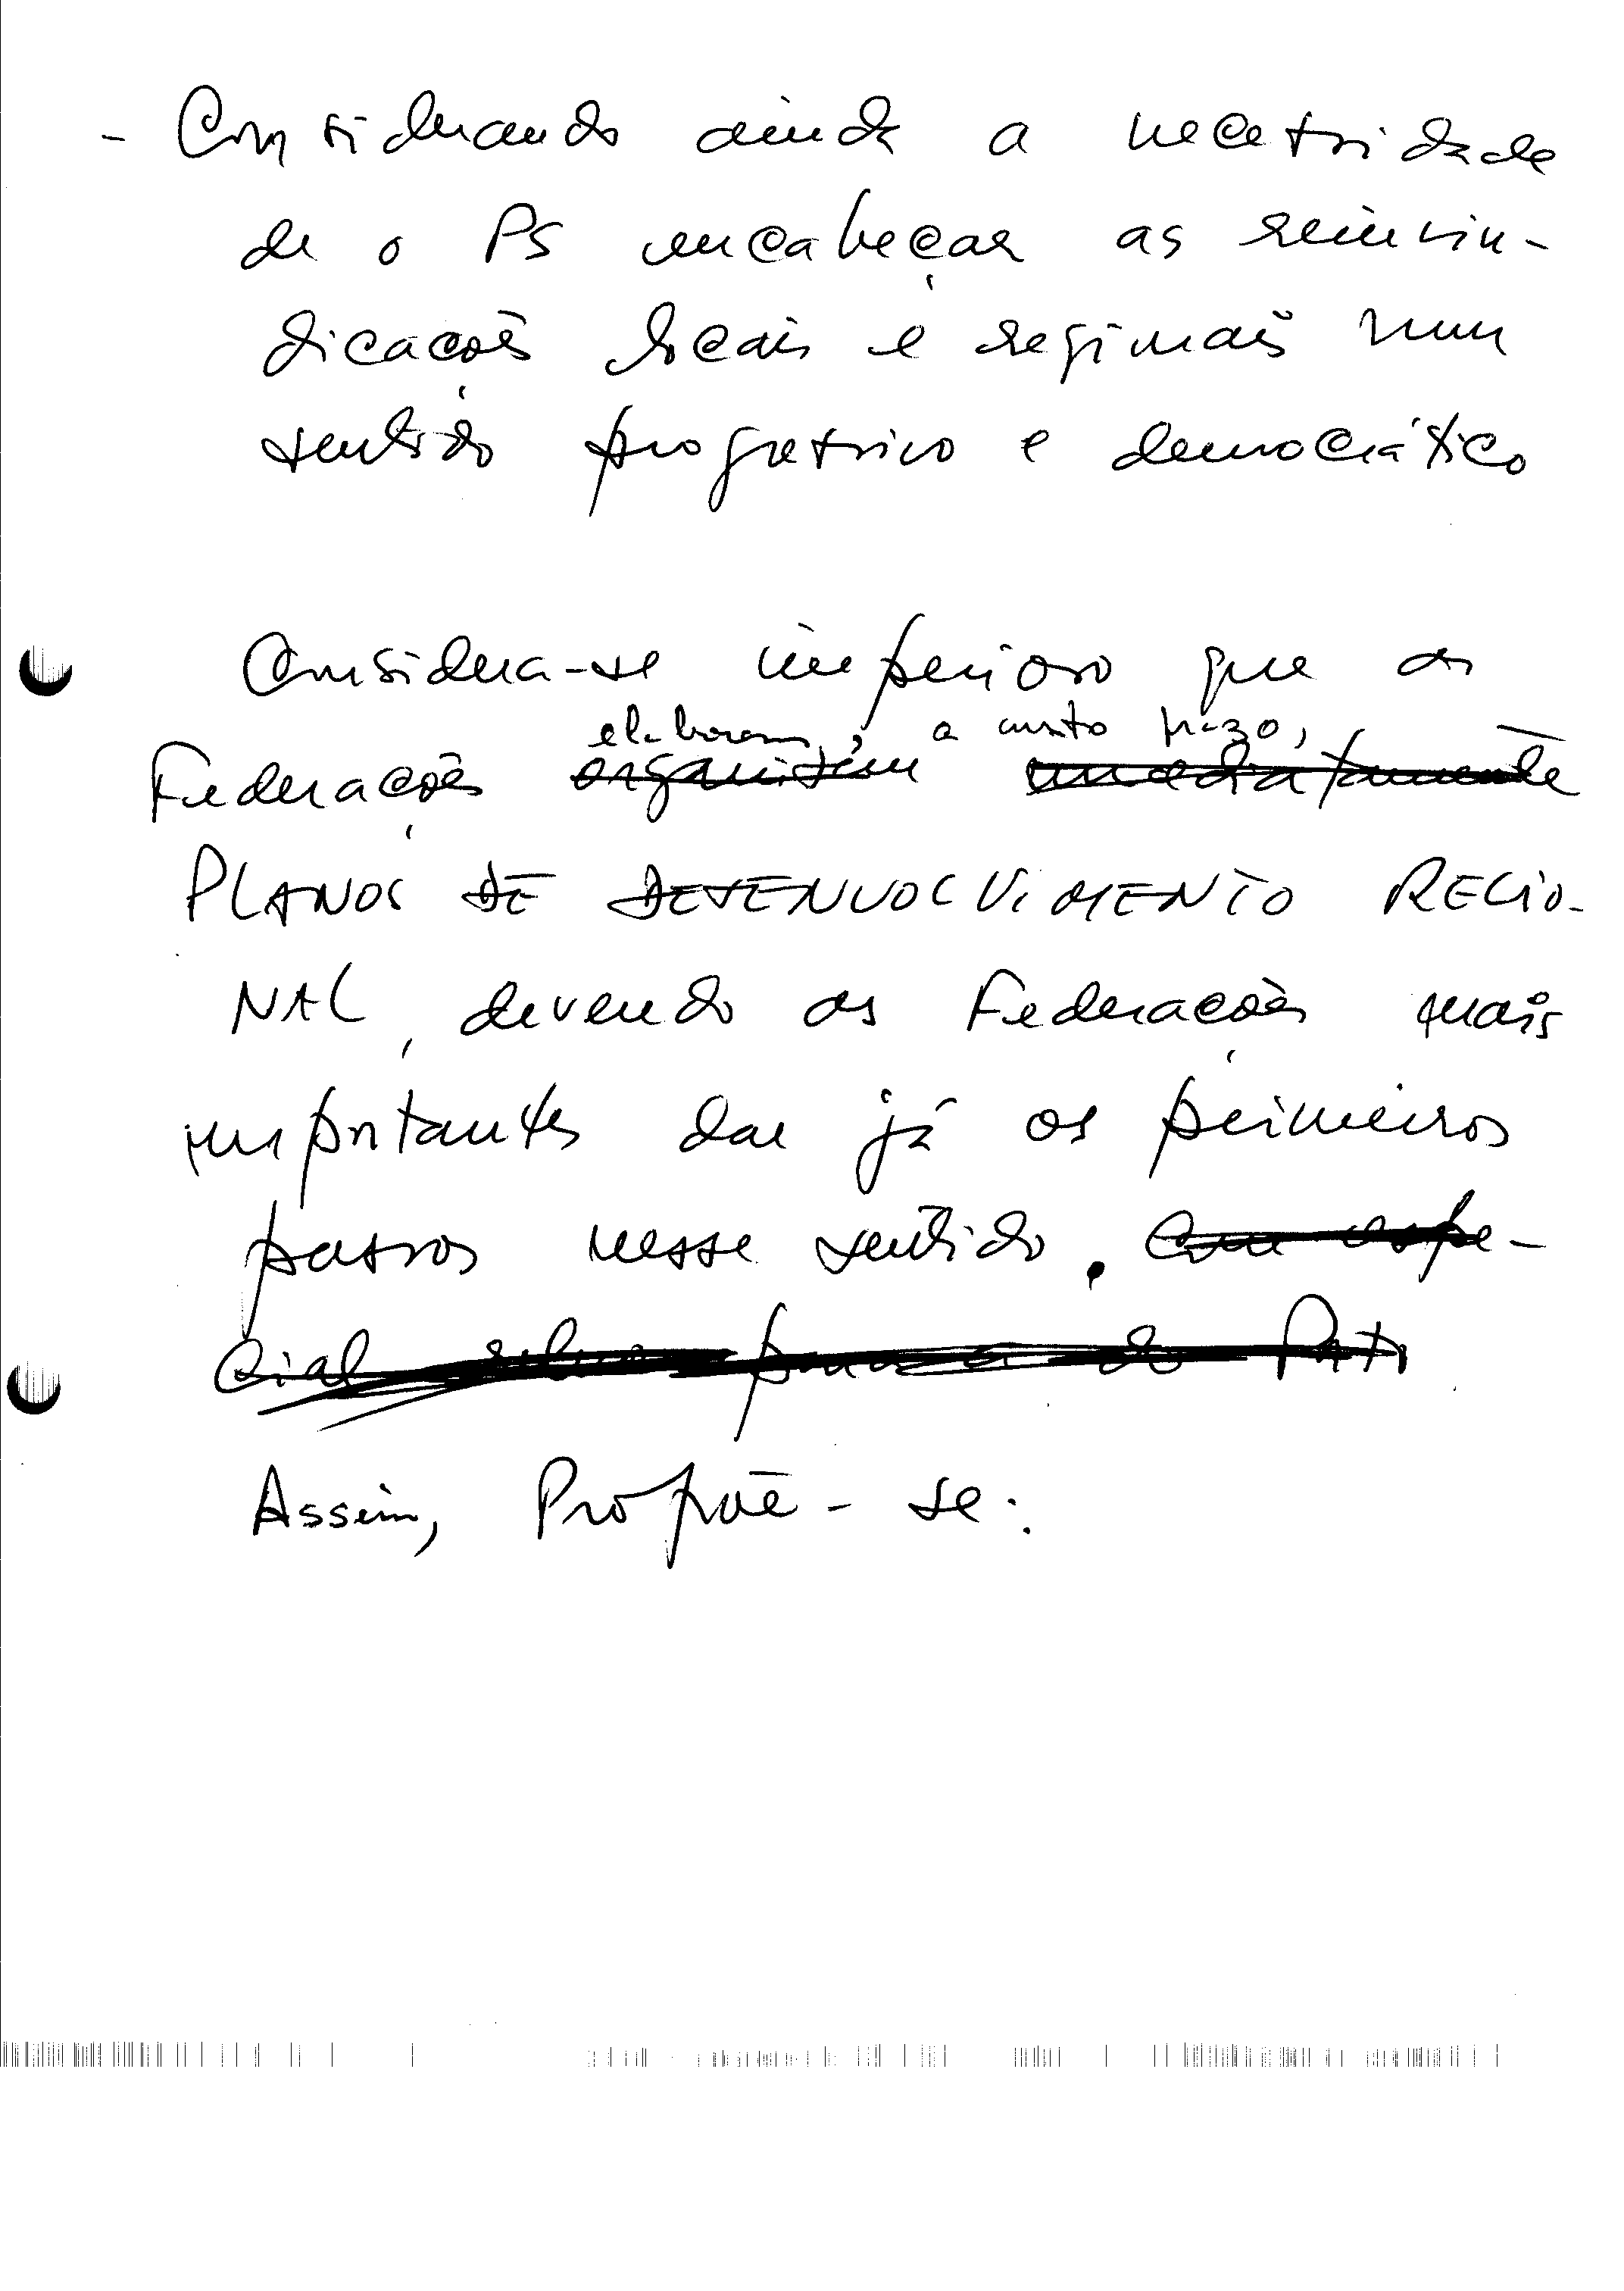 - Considerando ainda a necessidade
de o PS encabeçar as reivin-
dicações locais e regionais num
sentido progressivo e democrático
Considera-se imperioso que as
elaborem, a curto prazo,
Federações organizem imediatamente
PLANOS DE DESENVOLVIMENTO REGIO-
NAL, devendo as Federações mais
importantes dar já os primeiros
passos nesse sentido. Com espe-
cial do
Assim, Propõe-se: